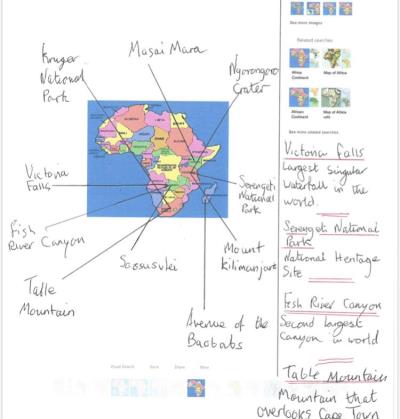 See more images
Related searches
Africa
Continent
Map of Africa
African
Continent
Map of Africa
See more related searches
Masai Mara
Kruger
National
Park
Ngorongoro
Crater
Victoria
Falls
Serengeti
National
Park
Fish
River Canyon
Sossusvlei
Mount
Kilimanjaro
Table
Mountain
Avenue of the
Baobabs
Victoria Falls
Largest Singular
Waterfall in the
world.
Serengeti National
Park
National Heritage
Site
Fish River Canyon
Second largest
Canyon in world
Table Mountain
Mountain that
overlooks Cape Town